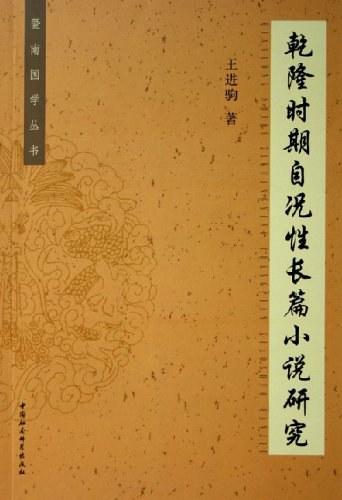 暨南国学丛书
乾隆时期自况性长篇小说研究
王进驹 著
中国社会科学出版社